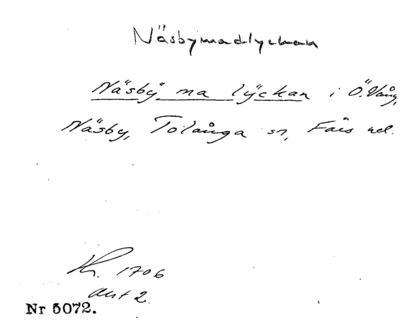 Näsbymadlyckan
Näsbÿ ma lÿckan i Ö. Vång,
Näsby, Tolånga sn, Färs hd.
Kr. 1706
akt 2.
Nr 5072.